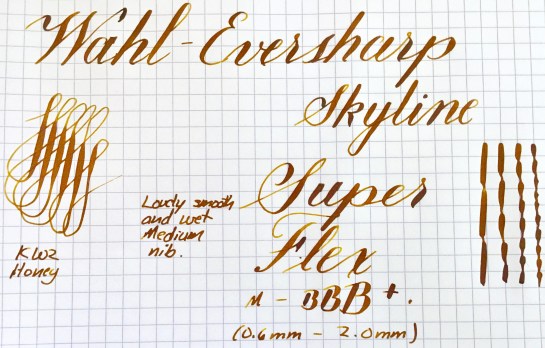 Wahl-Eversharp
Skyline
Super
Flex
M - BBB+.
(0.6mm - 2.0mm)
Lovely smooth
and wet
Medium
nib.
KWZ
Honey